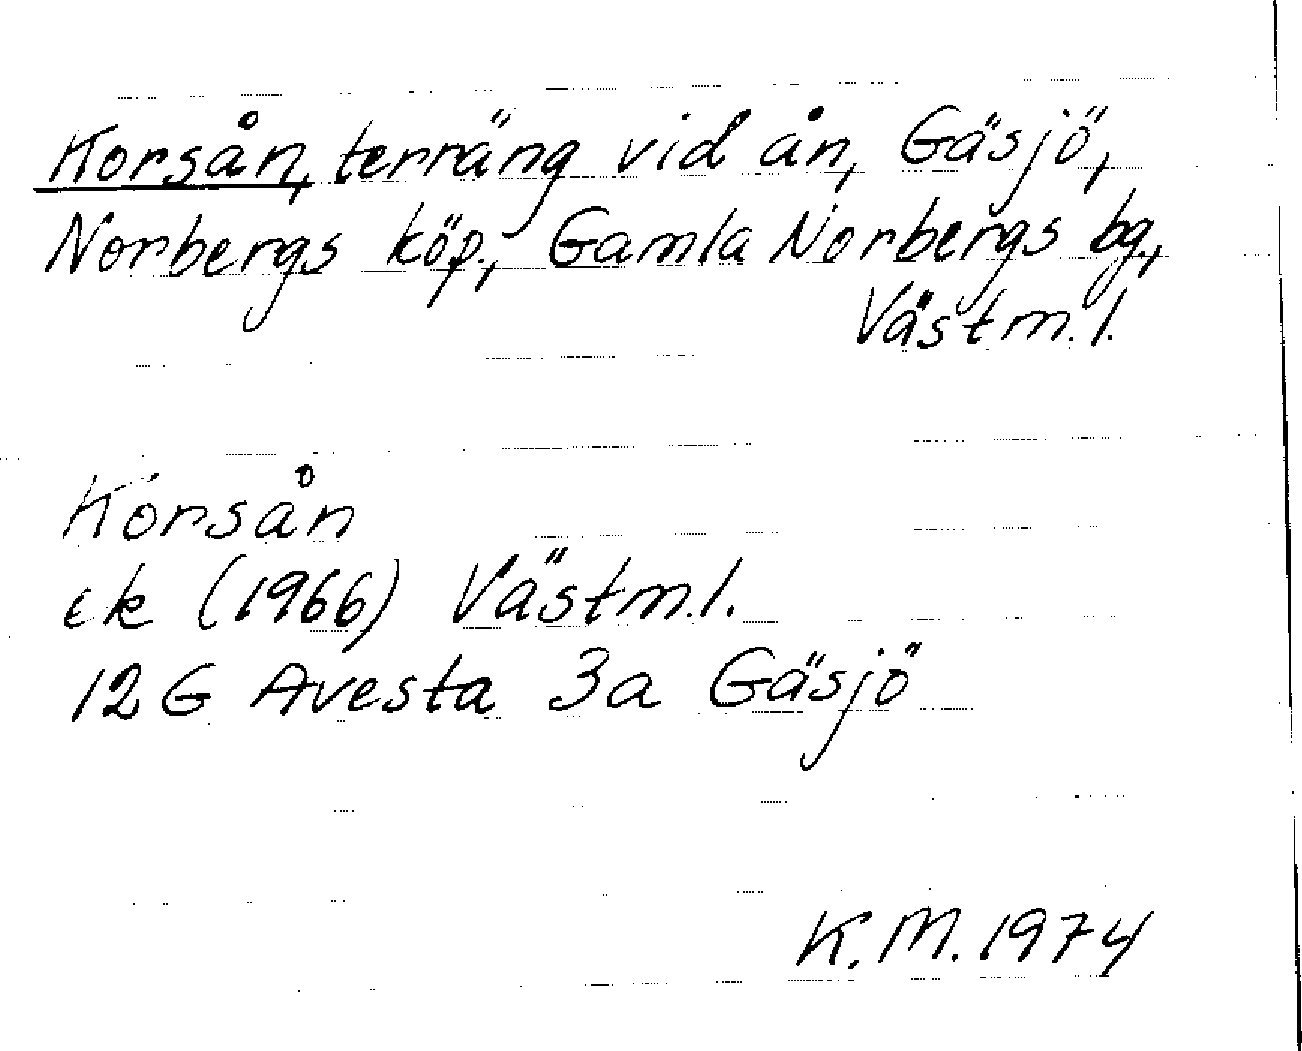 Korsån, terräng vid ån, Gäsjö,
Norbergs köp., Gamla Norbergs bg.,
Västm.l.
Korsån
ek (1966) Västm.l.
12 G Avesta 3a Gäsjö
K.M. 1974